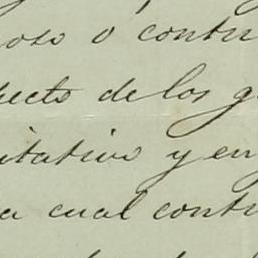 oso o contr
pecto de los g
itativo y en
a cual contr